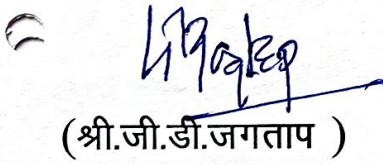 (श्री.जी.डी.जगताप )